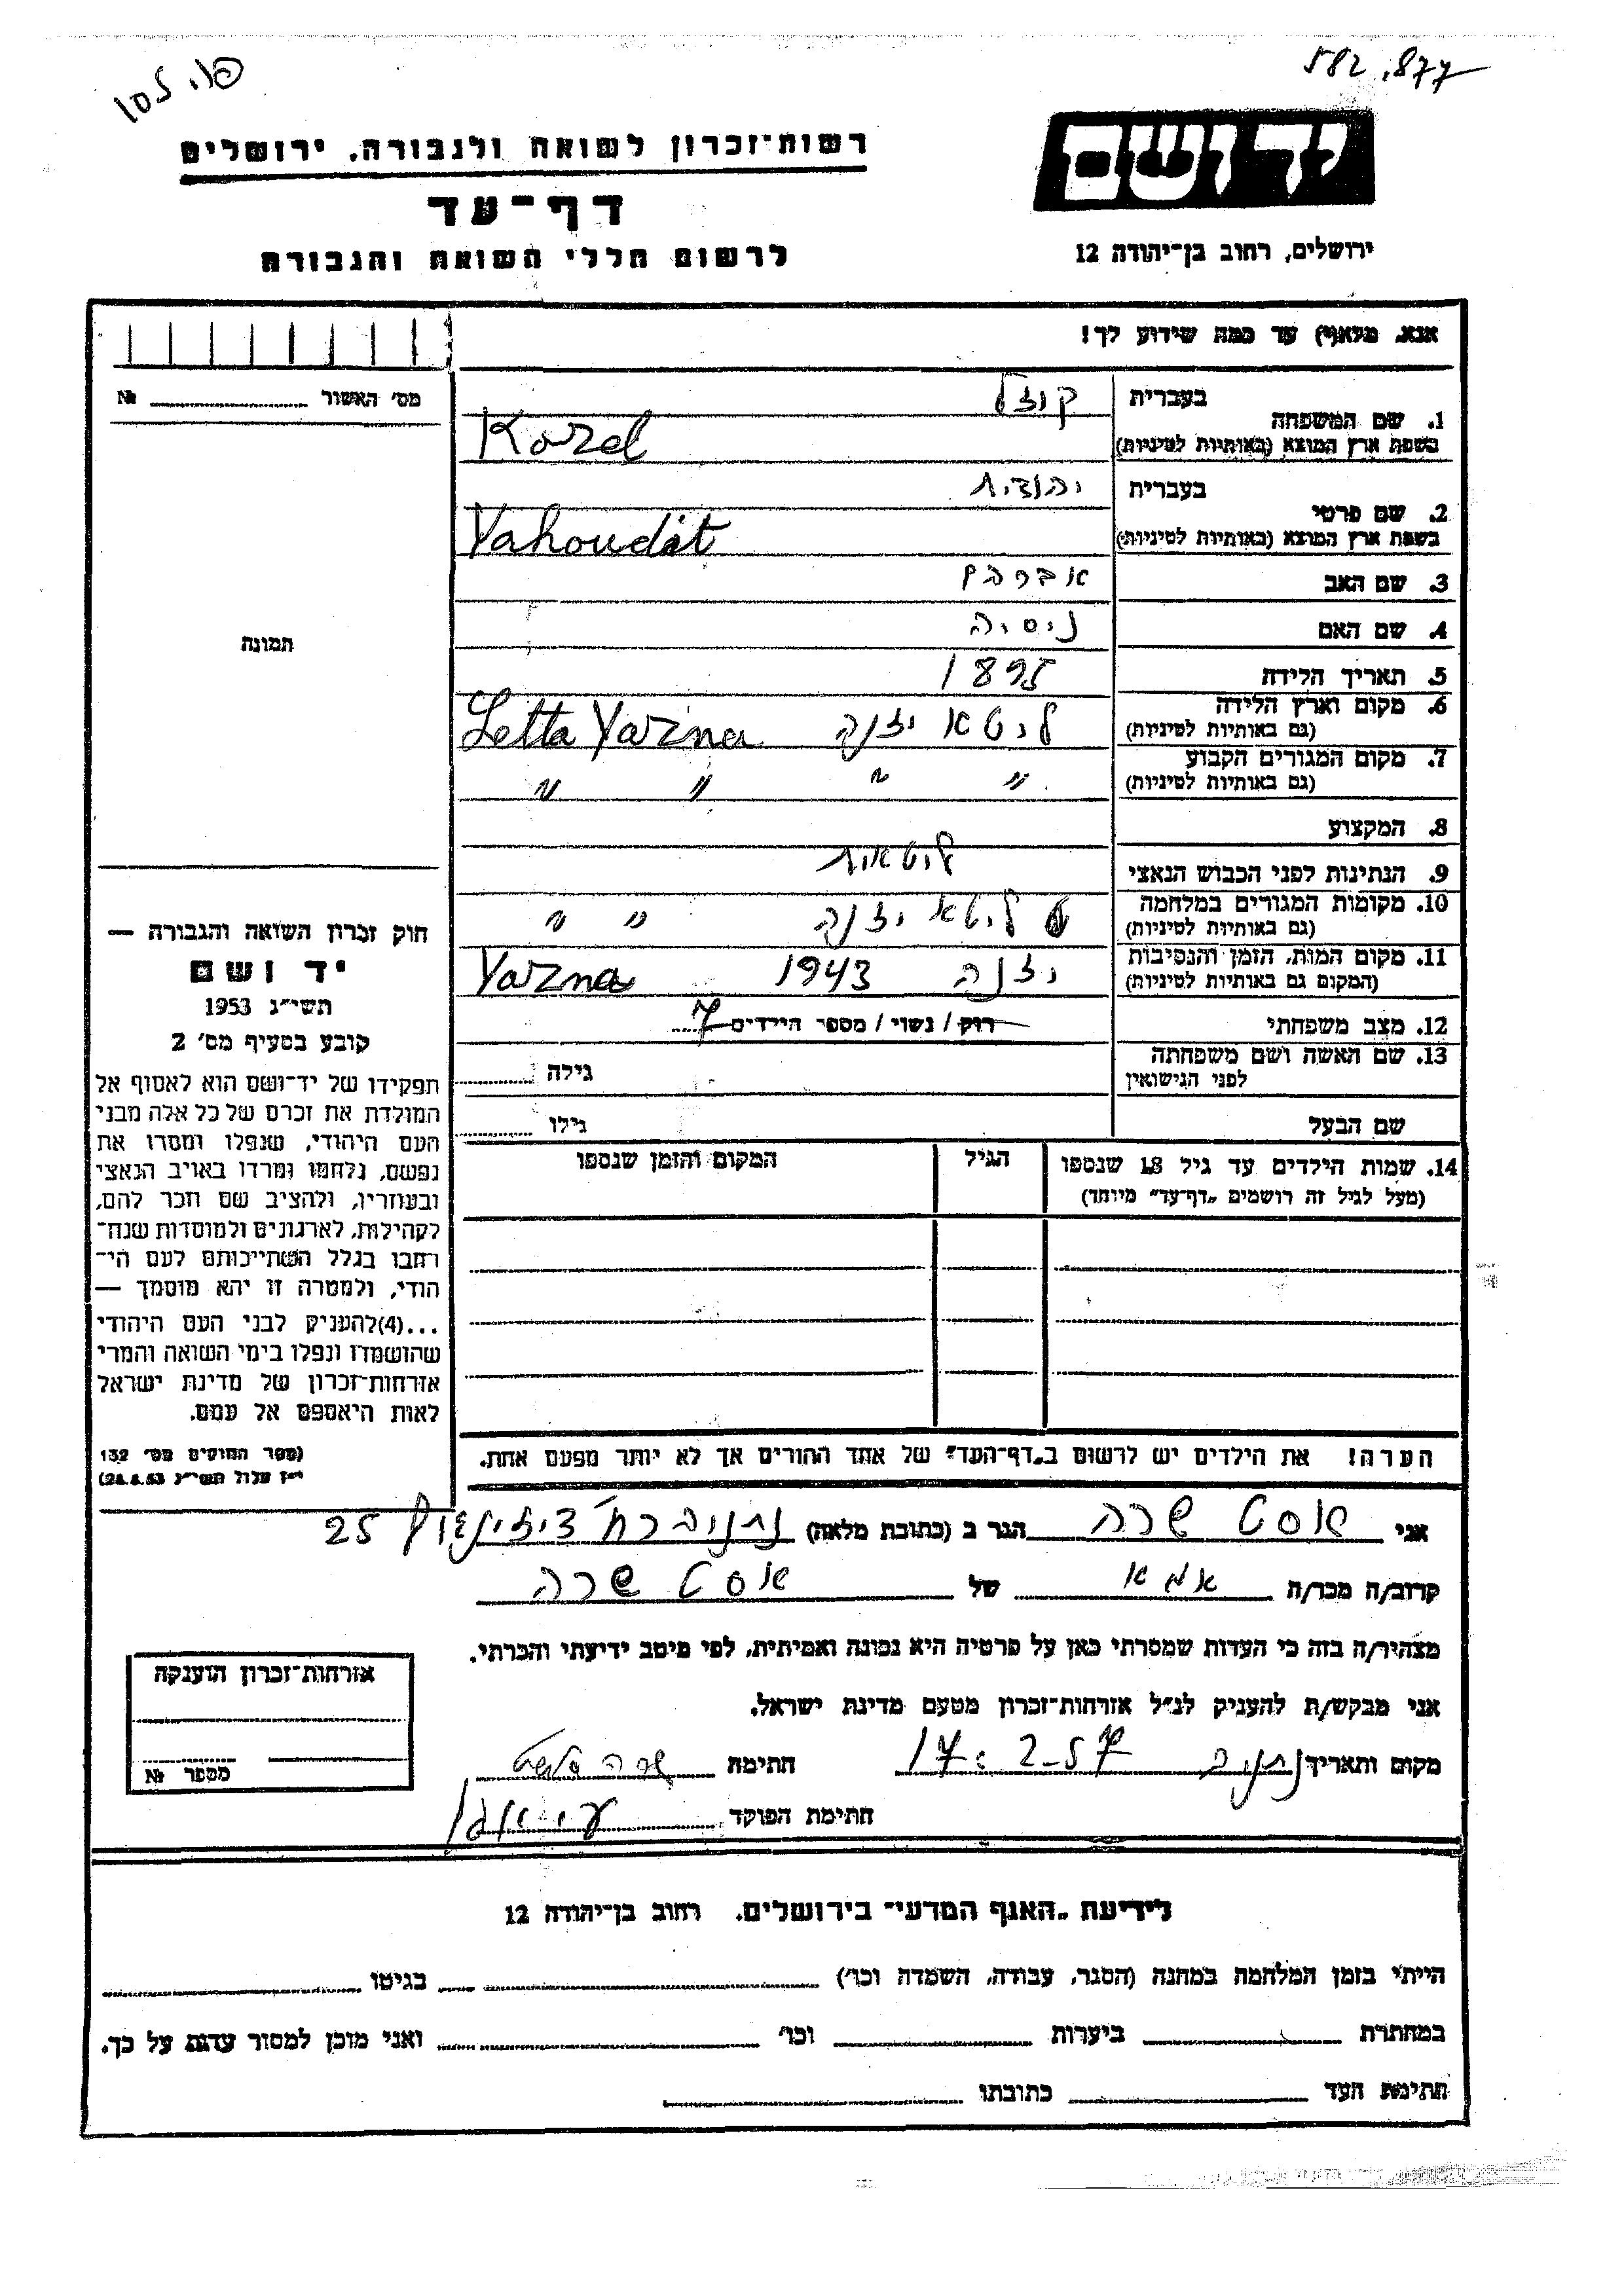 582,877
יד ושם
ירושלים, רחוב בן־יהודה 12
רשות־זכרון לשואה ולגבורה, ירושלים
דף־עד
לרשום חללי השואה והגבורה
אנא, מלא(י) עד כמה שידוע לך!
מס' האשור №
1. שם המשפחה
בעברית קוזל
בשפת ארץ המוצא (באותיות לטיניות) Kozel
2. שם פרטי
בעברית יהודית
בשפת ארץ המוצא (באותיות לטיניות) Yahoudit
3. שם האב אברהם
4. שם האם ניסיה
5. תאריך הלידה 1895
6. מקום וארץ הלידה (גם באותיות לטיניות) ליטא יזנה Letta Yazna
7. מקום המגורים הקבוע (גם באותיות לטיניות) " " " "
8. המקצוע
9. הנתינות לפני הכבוש הנאצי ליטאית
10. מקומות המגורים במלחמה (גם באותיות לטיניות) ליטא יזנה " "
11. מקום המות, הזמן והנסיבות (המקום גם באותיות לטיניות) יזנה 1943 Yazna
12. מצב משפחתי רוק / נשוי / מספר הילדים 7
13. שם האשה ושם משפחתה לפני הנישואין גילה
שם הבעל גילו
14. שמות הילדים עד גיל 18 שנספו
(מעל לגיל זה רושמים "דף־עד" מיוחד)
הגיל
המקום והזמן שנספו
הערה! את הילדים יש לרשום ב"דף־העד" של אחד ההורים אך לא יותר מפעם אחת.
תמונה
חוק זכרון השואה והגבורה —
יד ושם
תשי"ג 1953
קובע בסעיף מס' 2
תפקידו של יד־ושם הוא לאסוף אל
המולדת את זכרם של כל אלה מבני
העם היהודי, שנפלו ומסרו את
נפשם, נלחמו ומרדו באויב הנאצי
ובעוזריו, ולהציב שם וזכר להם,
לקהילות, לארגונים ולמוסדות שנח־
רבו בגלל השתייכותם לעם הי־
הודי, ולמטרה זו יהא מוסמך —
...(4) להעניק לבני העם היהודי
שהושמדו ונפלו בימי השואה והמרי
אזרחות־זכרון של מדינת ישראל
לאות היאספם אל עמם.
(ספר החוקים מס' 132
י"ז אלול תשי"ג 28.8.53)
אני אסט שרה הגר ב (כתובת מלאה) נתניה רח' דיזינגוף 25
קרוב/ה מכר/ה אמא של אסט שרה
מצהיר/ה בזה כי העדות שמסרתי כאן על פרטיה היא נכונה ואמיתית, לפי מיטב ידיעתי והכרתי.
אני מבקש/ת להעניק לנ"ל אזרחות־זכרון מטעם מדינת ישראל.
מקום ותאריך נתניה 17.2-57 חתימה
חתימת הפוקד
אזרחות־זכרון הוענקה
מספר №
לידיעת "האגף המדעי" בירושלים, רחוב בן־יהודה 12
הייתי בזמן המלחמה במחנה (הסגר, עבודה, השמדה וכו') בגיטו
במחתרת ביערות וכו' ואני מוכן למסור עדות על כך.
חתימת העד כתובתו